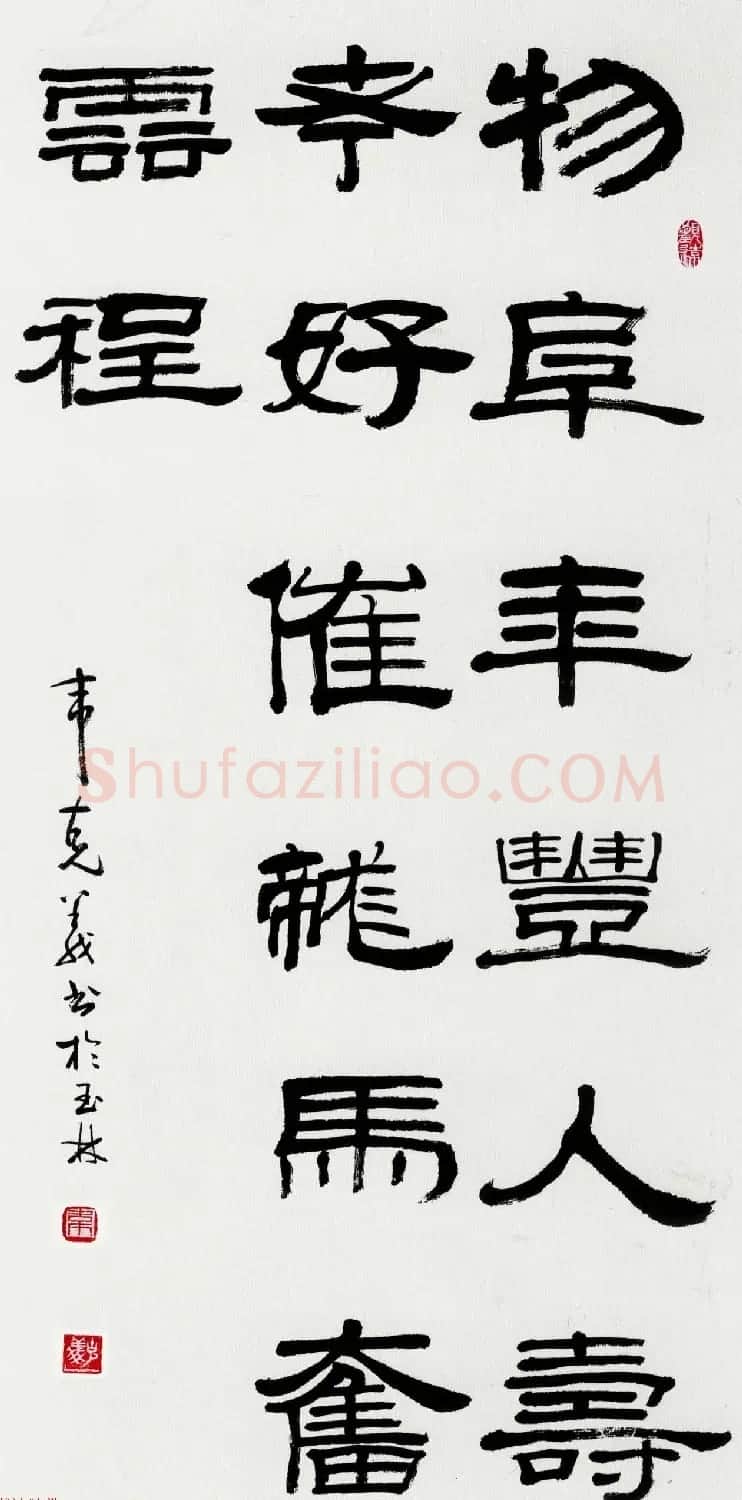 物阜年豐人壽
考好催龍馬奮
雲程
韦克義书於玉林
Shufaziliao.COM